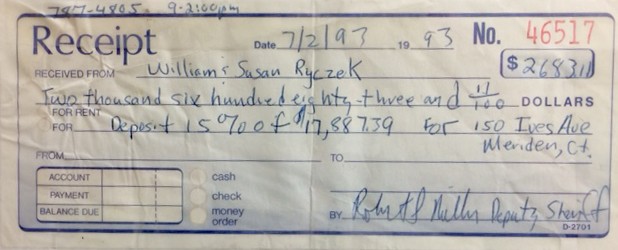 797-4805 9-2:00pm
Receipt Date 7/2/93 19 93 No. 46517
RECEIVED FROM William & Susan Ryczek $2683.11
Two thousand six hundred eighty-three and 11/100 DOLLARS
FOR RENT
FOR Deposit 15% of $17,887.39 For 150 Ives Ave
Meriden, Ct.
FROM TO
ACCOUNT cash
PAYMENT check
BALANCE DUE money order
BY Robert S Miller Deputy Sheriff
D-2701